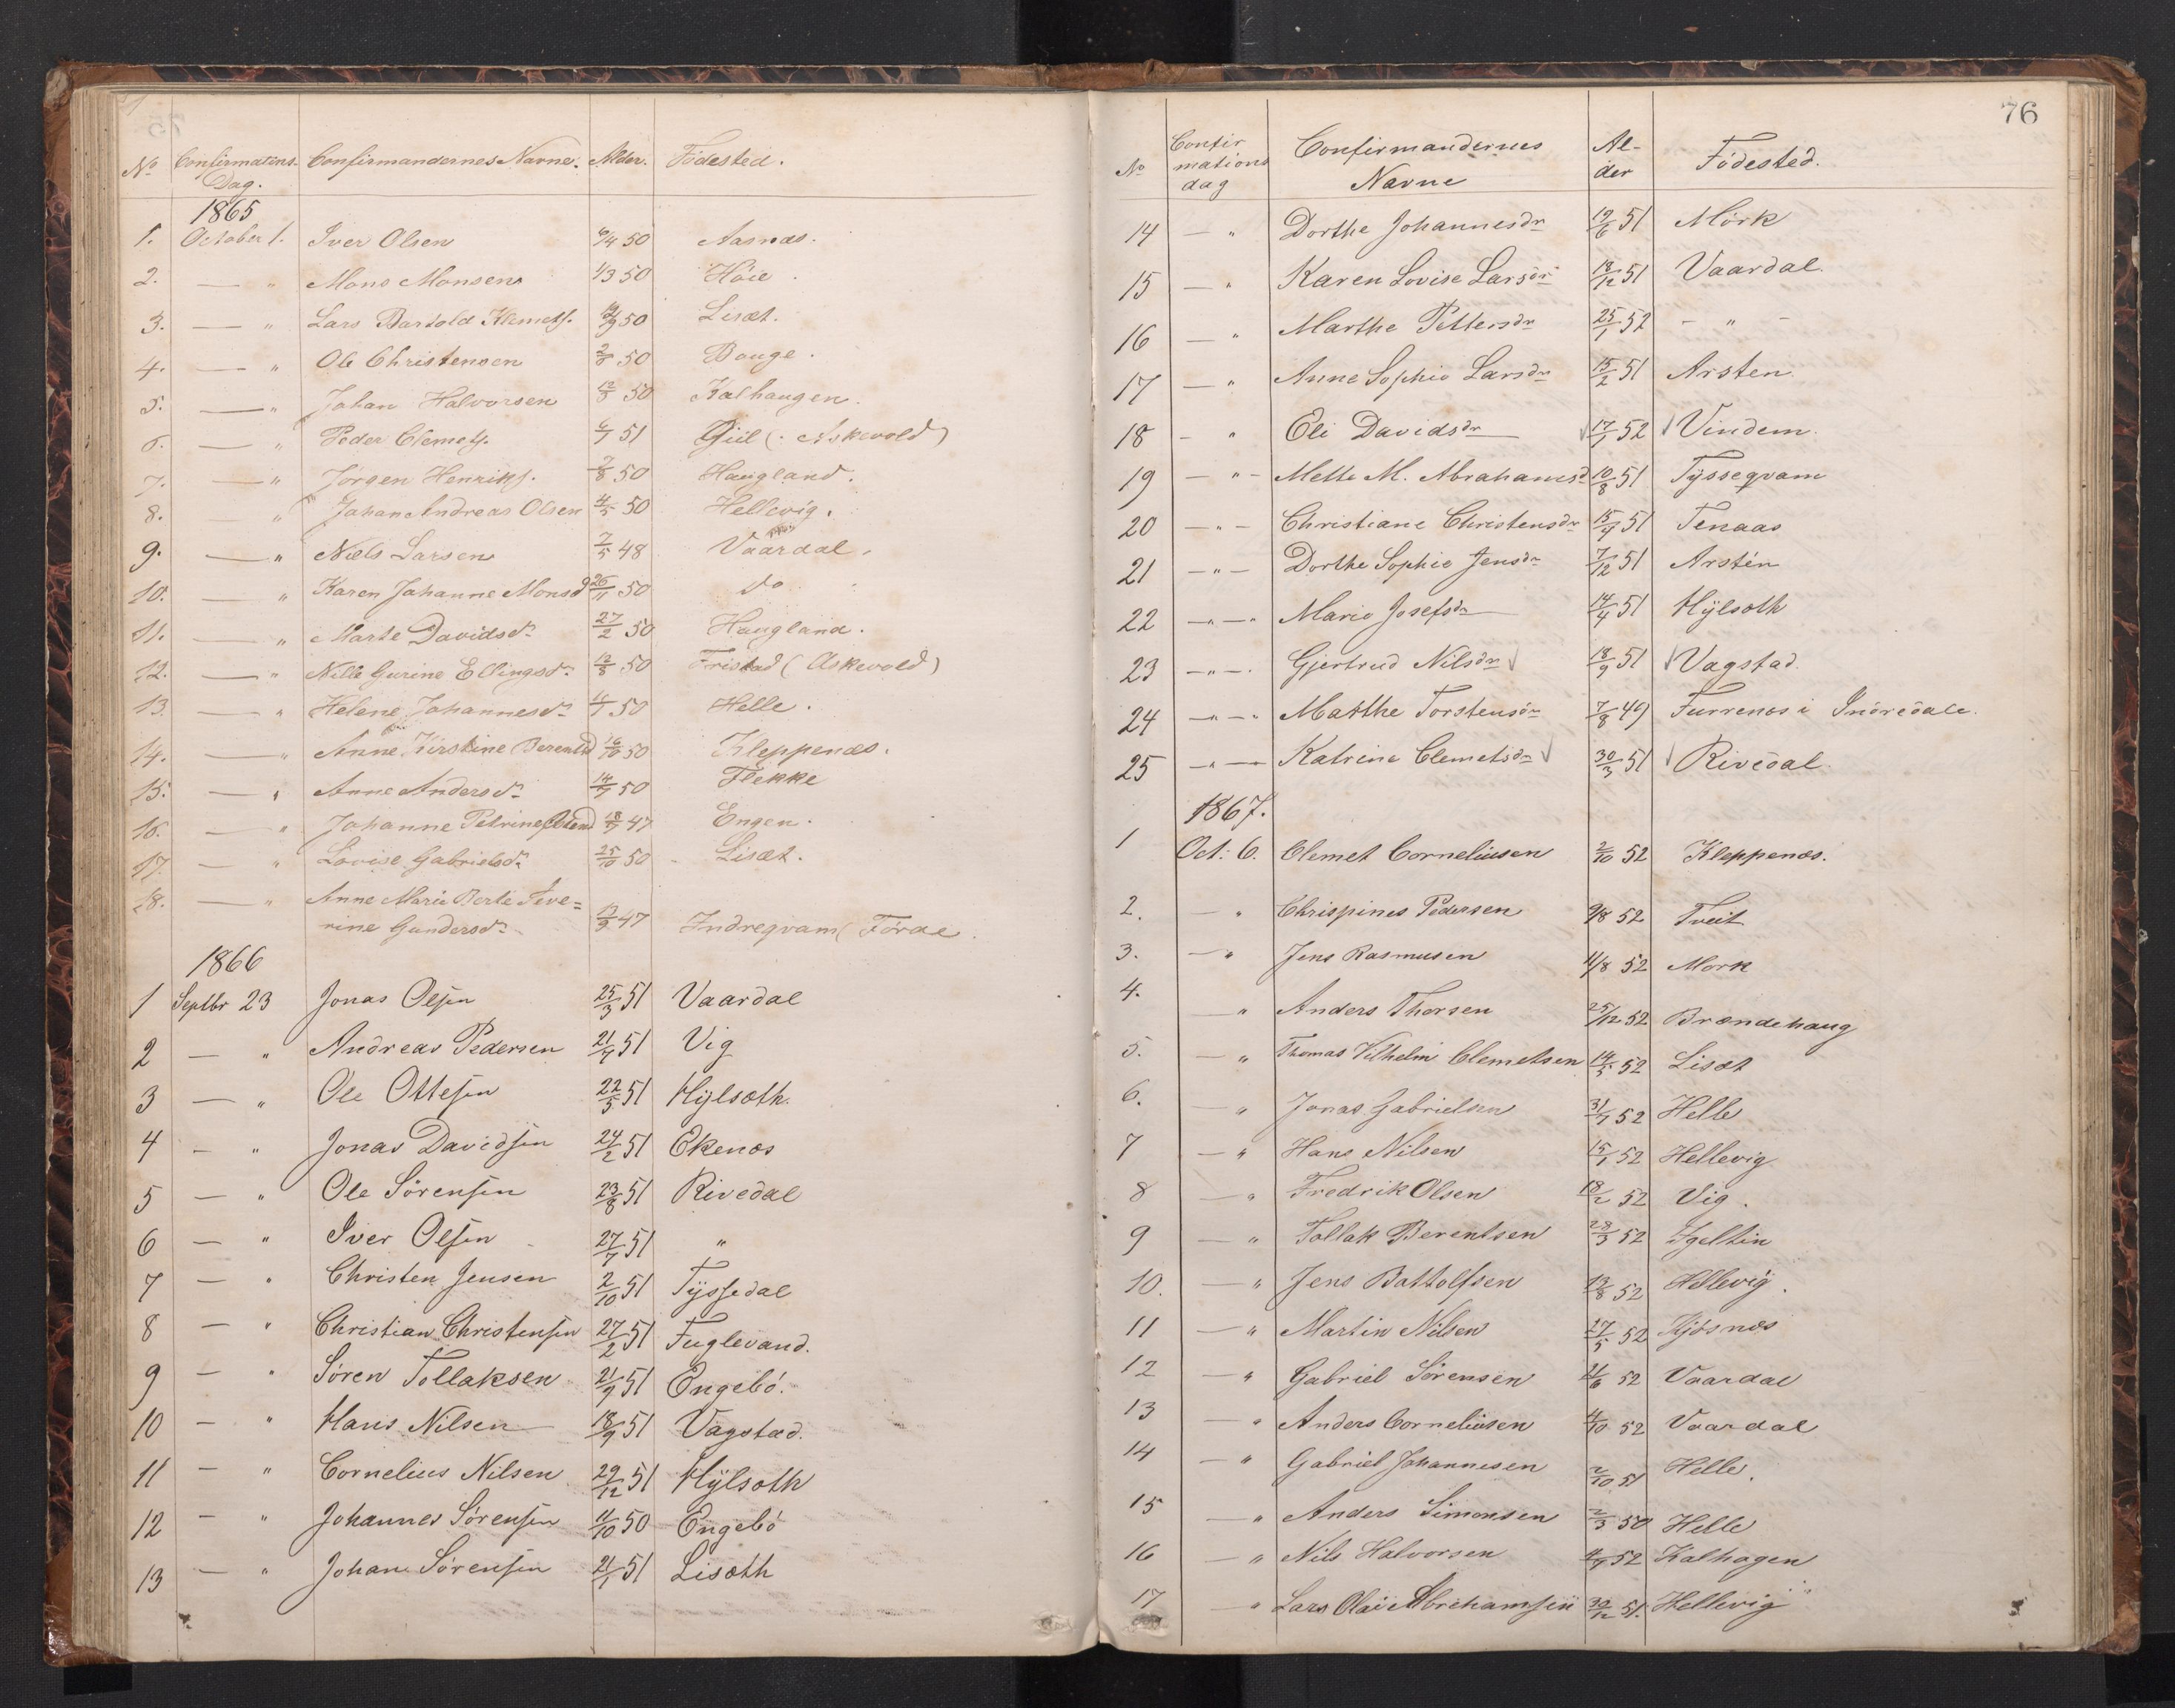 No Confirmations- Confirmandernes Navne. Alder. Födested.
Dag.
1865
1. October 1. Iver Olsen 6/4 50 Aasnæs.
2. — " Mons Monsen 1/3 50 Höie.
3. — " Lars Bartold Klemets. /9 50 Lisæt.
4. — " Ole Christensen 2/8 50 Bauge.
5. — " Johan Halvorsen 12/8 50 Kalhaugen.
6. — " Peder Clemets. 6/1 51 Giil (Askevold)
7. — " Jörgen Henriks. 7/8 50 Haugland.
8. — " Johan Andreas Olsen 4/5 50 Hellevig.
9. — " Niels Larsen 7/5 48 Vaardal.
10. — " Karen Johanne Monsd 26/11 50 do
11. — " Marte Davidsdr 27/2 50 Haugland.
12. — " Nille Gurine Ellingsdr 12/8 50 Fristad (Askevold)
13. — " Helene Johannesdr 4/1 50 Helle.
14. — " Anne Kirstine Berentsd 16/10 50 Kleppenæs.
15. — " Anne Andersdr 14/7 50 Flekke
16. — " Johanne Petrine 18/7 47 Engen.
17. — " Lovise Gabrielsdr 25/10 50 Lisæt.
18. — " Anne Marie Berte Seve=
rine Gundersdr 12/9 47 Indreqvam (Förde.
1866
1 Septbr 23 Jonas Olsen 25/3 51 Vaardal
2 — " Andreas Pedersen 21/7 51 Vig
3 — " Ole Ottesen 22/5 51 Hÿlsæth.
4 — " Jonas Davidsen 24/2 51 Ekenæs
5 — " Ole Sörensen 23/8 51 Rivedal
6 — " Iver Olsen 27/7 51 "
7 — " Christen Jensen 2/10 51 Tÿssedal
8 — " Christian Christensen 27/2 51 Fuglevand.
9 — " Sören Tollaksen 21/9 51 Engebö.
10 — " Hans Nilsen 18/9 51 Vagstad.
11 — " Cornelius Nilsen 29/12 51 Hÿlsæth
12 — " Johannes Sörensen 11/10 50 Engebö
13 — " Johan Sörensen 21/1 51 Lisæth
76
No Confir Confirmandernes Al- Födested.
mations Navne der
dag
14 — " Dorthe Johannesdr 19/6 51 Mörk
15 — " Karen Lovise Larsdr 18/12 51 Vaardal.
16 — " Marthe Pettersdr 25/1 52 - " -
17 — " Anne Sophie Larsdr 15/2 51 Arsten.
18 - " Eli Davidsdr 17/1 52 Vindem.
19 — " - Mette M. Abrahamsd 10/8 51 Tÿsseqvam
20 — " — Christiane Christensdr 15/9 51 Tenaas
21 — " — Dorthe Sophie Jensdr 7/12 51 Arstén
22 — " — Marie Josefsdr 14/4 51 Hÿlsæth
23 — " — Gjertrud Nilsdr 18/9 51 Vagstad.
24 — " — Marthe Torstensdr 7/8 49 Furrenes i Indredale.
25 — " — Katrine Clemetsdr 30/3 51 Rivedal.
1867.
1 Oct: 6. Clemet Corneliusen 2/10 52 Kleppenæs.
2. — " Chrispines Pedersen 9/8 52 Tveit
3. — " Jens Rasmusen 11/8 52 Mork
4. — " Anders Thorsen 25/12 52 Brændehaug
5. — " Thomas Vilhelm Clemetsen 14/5 52 Lisæt
6. — " Jonas Gabrielsen 31/7 52 Helle
7 — " Hans Nilsen 15/1 52 Hellevig
8 — " Fredrik Olsen 18/2 52 Vig.
9 — " Tollak Berentsen 28/3 52 Igeltin
10. — " Jens Battolfsen 13/8 52 Hellevig.
11 — " Martin Nilsen 27/5 52 Kjösnæs
12 — " Gabriel Sörensen 21/6 52 Vaardal
13 — " Anders Corneliusen 4/10 52 Vaardal
14 — " Gabriel Johannesen 2/10 51 Helle.
15 — " Anders Simonsen 2/3 50 Helle
16 — " Nils Halvorsen 4/7 52 Kalhagen
17 — " Lars Olai Abrahamsen 30/12 51. Hellevig